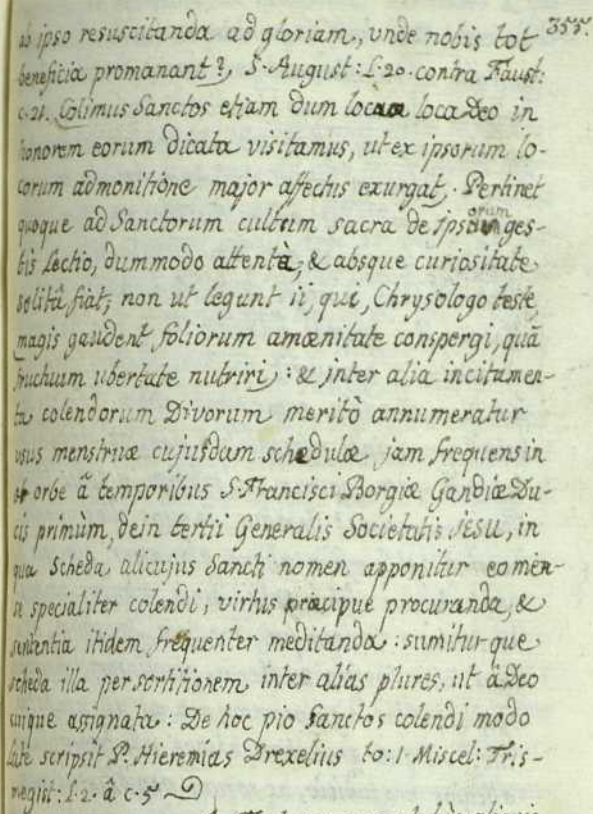 355.
ab ipso resuscitanda ad gloriam, vnde nobis tot
beneficia promanant?, S. August: L. 20. contra Faust:
c. 21. Colimus Sanctos etiam dum loca Deo in
honorem eorum dicata visitamus, ut ex ipsorum lo-
corum admonitione major affectus exurgat. Pertinet
quoque ad Sanctorum cultum sacra de ipsorum ges-
tis Lectio, dummodo attentè, & absque curiositate
solitâ fiat; non ut legunt ii, qui, Chrysologo teste,
magis gaudent foliorum amœnitate conspergi, quā
fructuum ubertate nutriri: & inter alia incitamen-
ta colendorum Divorum meritò annumeratur
usus menstruæ cujusdam schedulæ jam frequens in
orbe â temporibus S. Francisci Borgiæ Gandiæ Du-
cis primùm, dein tertii Generalis Societatis JESU, in
qua Scheda alicujus Sancti nomen apponitur eo men-
se specialiter colendi, virtus præcipue procuranda, &
sententia itidem frequenter meditanda: sumiturque
scheda illa per sortitionem inter alias plures, ut â Deo
cuique assignata: De hoc pio Sanctos colendi modo
late scripsit P. Hieremias Drexelius to: 1. Miscel: Tris-
megist: L. 2. â c. 5